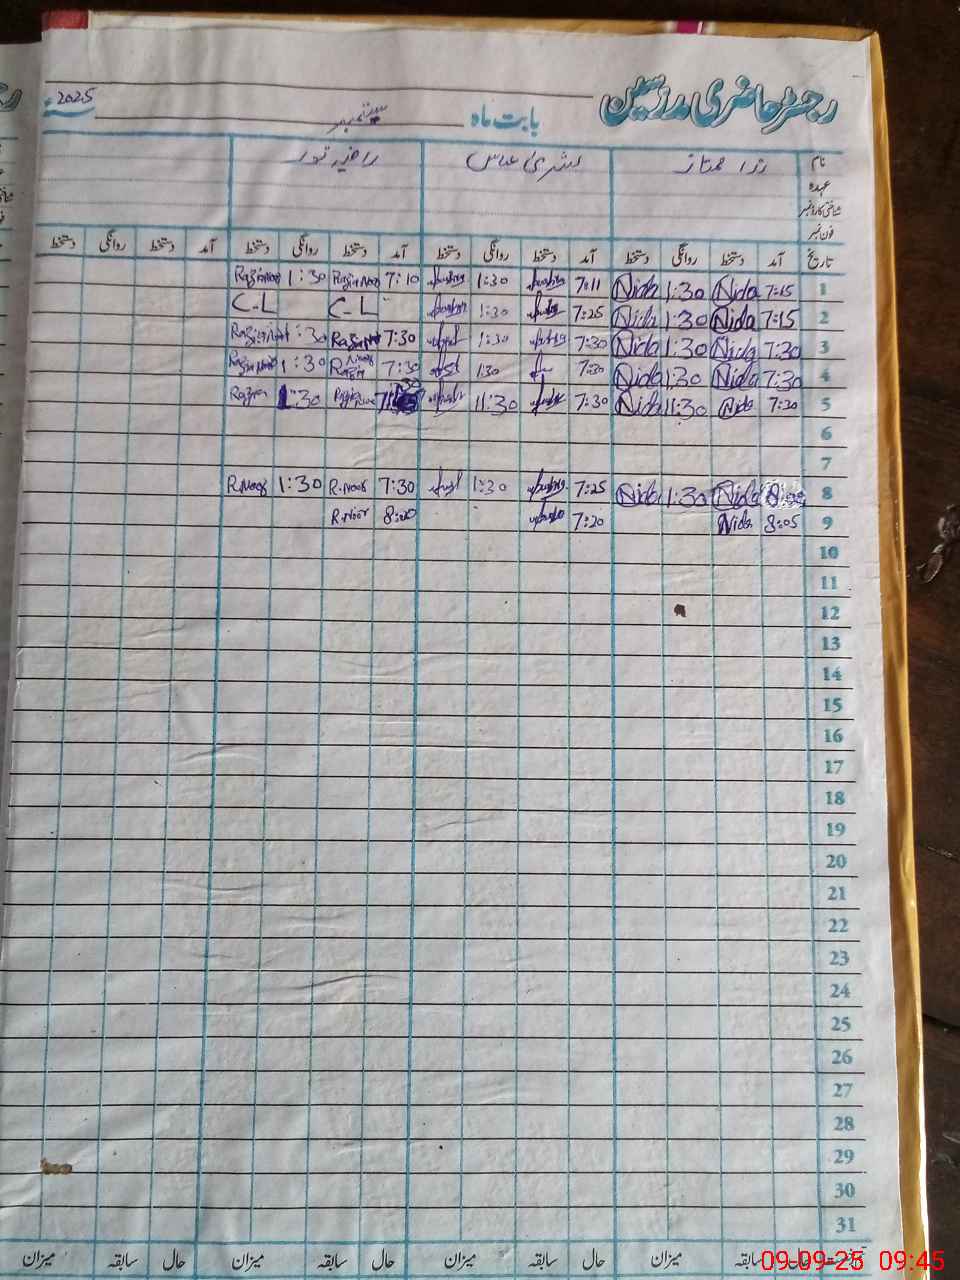 رجسٹر حاضری مدرسین بابت ماہ ستمبر 2025ء
نام ندا ممتاز بشریٰ عباس راضیہ نور
عہدہ
شناختی کارڈ نمبر
فون نمبر
تاریخ آمد دستخط روانگی دستخط آمد دستخط روانگی دستخط آمد دستخط روانگی دستخط آمد دستخط روانگی دستخط
1 7:15 Nida 1:30 Nida 7:11 1:30 7:10 Razia Noor 1:30 Razia Noor
2 7:15 Nida 1:30 Nida 7:25 1:30 C-L C-L
3 7:30 Nida 1:30 Nida 7:30 1:30 7:30 Razia Noor 1:30 Razia Noor
4 7:30 Nida 1:30 Nida 7:30 1:30 7:30 Razia Noor 1:30 Razia Noor
5 7:30 Nida 11:30 Nida 7:30 11:30 Razia 1:30 Razia
6
7
8 Nida 1:30 Nida 7:25 1:30 7:30 R.Noor 1:30 R.Noor
9 8:05 Nida 7:20 8:20 R.Noor
10
11
12
13
14
15
16
17
18
19
20
21
22
23
24
25
26
27
28
29
30
31
حال سابقہ میزان حال سابقہ میزان حال سابقہ میزان حال سابقہ میزان
09-09-25 09:45